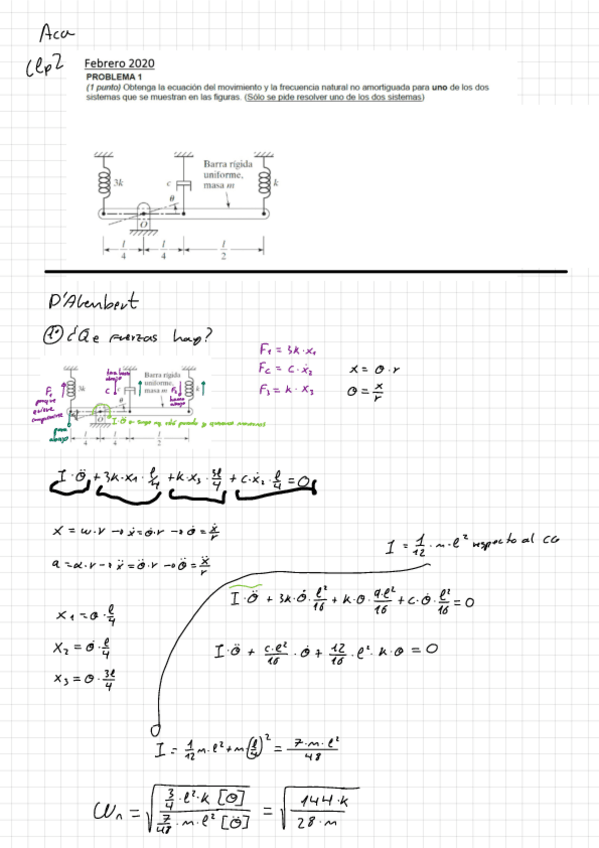 Aca
Clp2
Febrero 2020
PROBLEMA 1
(1 punto) Obtenga la ecuación del movimiento y la frecuencia natural no amortiguada para uno de los dos
sistemas que se muestran en las figuras. (Sólo se pide resolver uno de los dos sistemas)
Barra rígida
uniforme,
masa m
3k
c
k
θ
O
l/4
l/4
l/2
D'Alembert
① ¿Qe fuerzas hay?
F₁ = 3k·x₁
Fc = c·ẋ₂
F₃ = k·x₃
x = θ·r
θ = x/r
Barra rígida
uniforme,
masa m
3k
c
I·θ̈
l/4
l/4
l/2
I·θ̈ + 3k·x₁·l/4 + k·x₃·3l/4 + c·ẋ₂·l/4 = 0
x = w·r → ẋ = θ̇·r → θ̇ = ẋ/r
a = α·r → ẍ = θ̈·r → θ̈ = ẍ/r
I = 1/12·m·l² respecto al CG
x₁ = θ·l/4
x₂ = θ̇·l/4
x₃ = θ·3l/4
I·θ̈ + 3k·θ·l²/16 + k·θ·9·l²/16 + c·θ̇·l²/16 = 0
I·θ̈ + c·l²/16·θ̇ + 12/16·l²·k·θ = 0
I = 1/12 m·l² + m(l/4)² = 7·m·l²/48
ωn = √(3/4·l²·k [θ] / 7/48·m·l² [θ̈]) = √(144·k / 28·m)